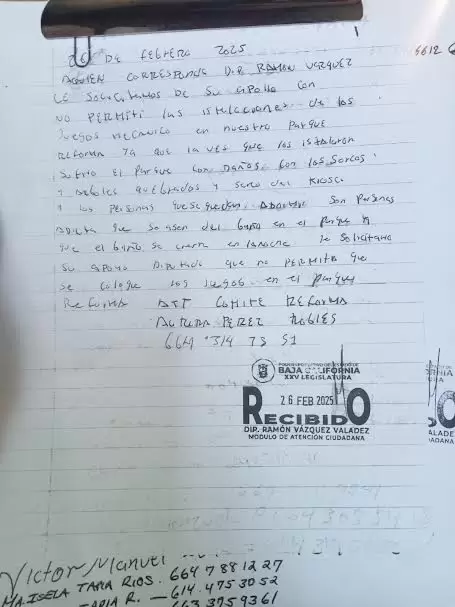 26 DE FEBRERO 2025
AQUIEN CORRESPONDE DIP. RAMON VAZQUEZ
LE SOLICITAMOS DE SU APOLLO CON
NO PERMITI las istalaciones de los
Juegos Mecanico en nuestro Parque
Reforma ya que la ves que los istalaron
Sufrio el Parque con Daños con los Sercos
y arboles quebrados y serco del Kiosco
y las Personas que se quedan son Personas
que so asen del baño en el Parque y
que el baño se en lanoche le Solicitamo
Su apoyo Diputado que no PERMITA que
se coloque los Juegos en el parque
Reforma ATT COMITE REFORMA
PEREZ ROBLES
664 314 73 51
5612 6
BAJA CALIFORNIA
XXV LEGISLATURA
26 FEB 2025
RECIBIDO
DIP. RAMÓN VÁZQUEZ VALADEZ
MODULO DE ATENCIÓN CIUDADANA
Victor Manuel
MAISELA TARIA RIOS. 664 788 1227
TAPIA R. — 614. 475 30 52
663 375 9361